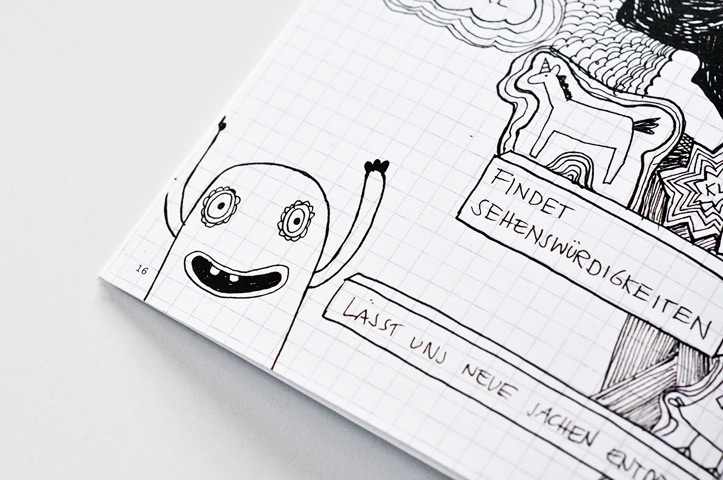 FINDET
SEHENSWÜRDIGKEITEN
LÄSST UNS NEUE SACHEN
16